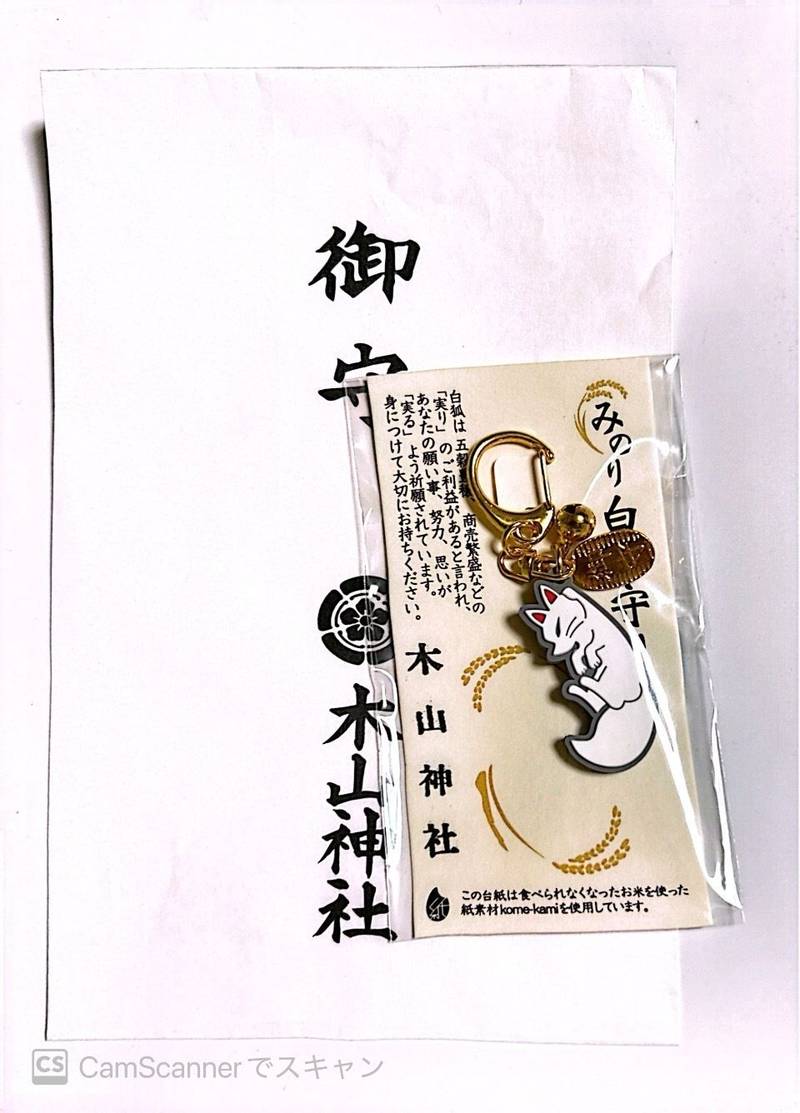 御守
木山神社
みのり白 守
白狐は五穀豊穣、商売繁盛などの
「実り」のご利益があると言われ、
あなたの願い事、努力、思いが
「実る」よう祈願されています。
身につけて大切にお持ちください。
木山神社
紙
この台紙は食べられなくなったお米を使った
紙素材kome-kamiを使用しています。
CS CamScannerでスキャン